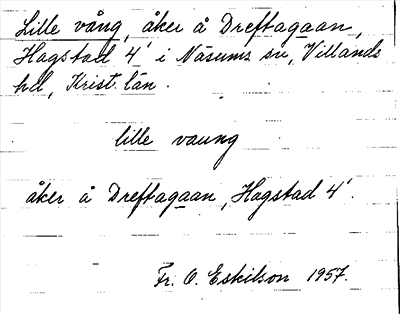 Lille vång, åker å Dreftagaan,
Hagstad 4' i Näsums sn, Villands
hd, Krist. län.
lille vaung
åker å Dreftagaan, Hagstad 4'.
Fr. O. Eskilson 1957.